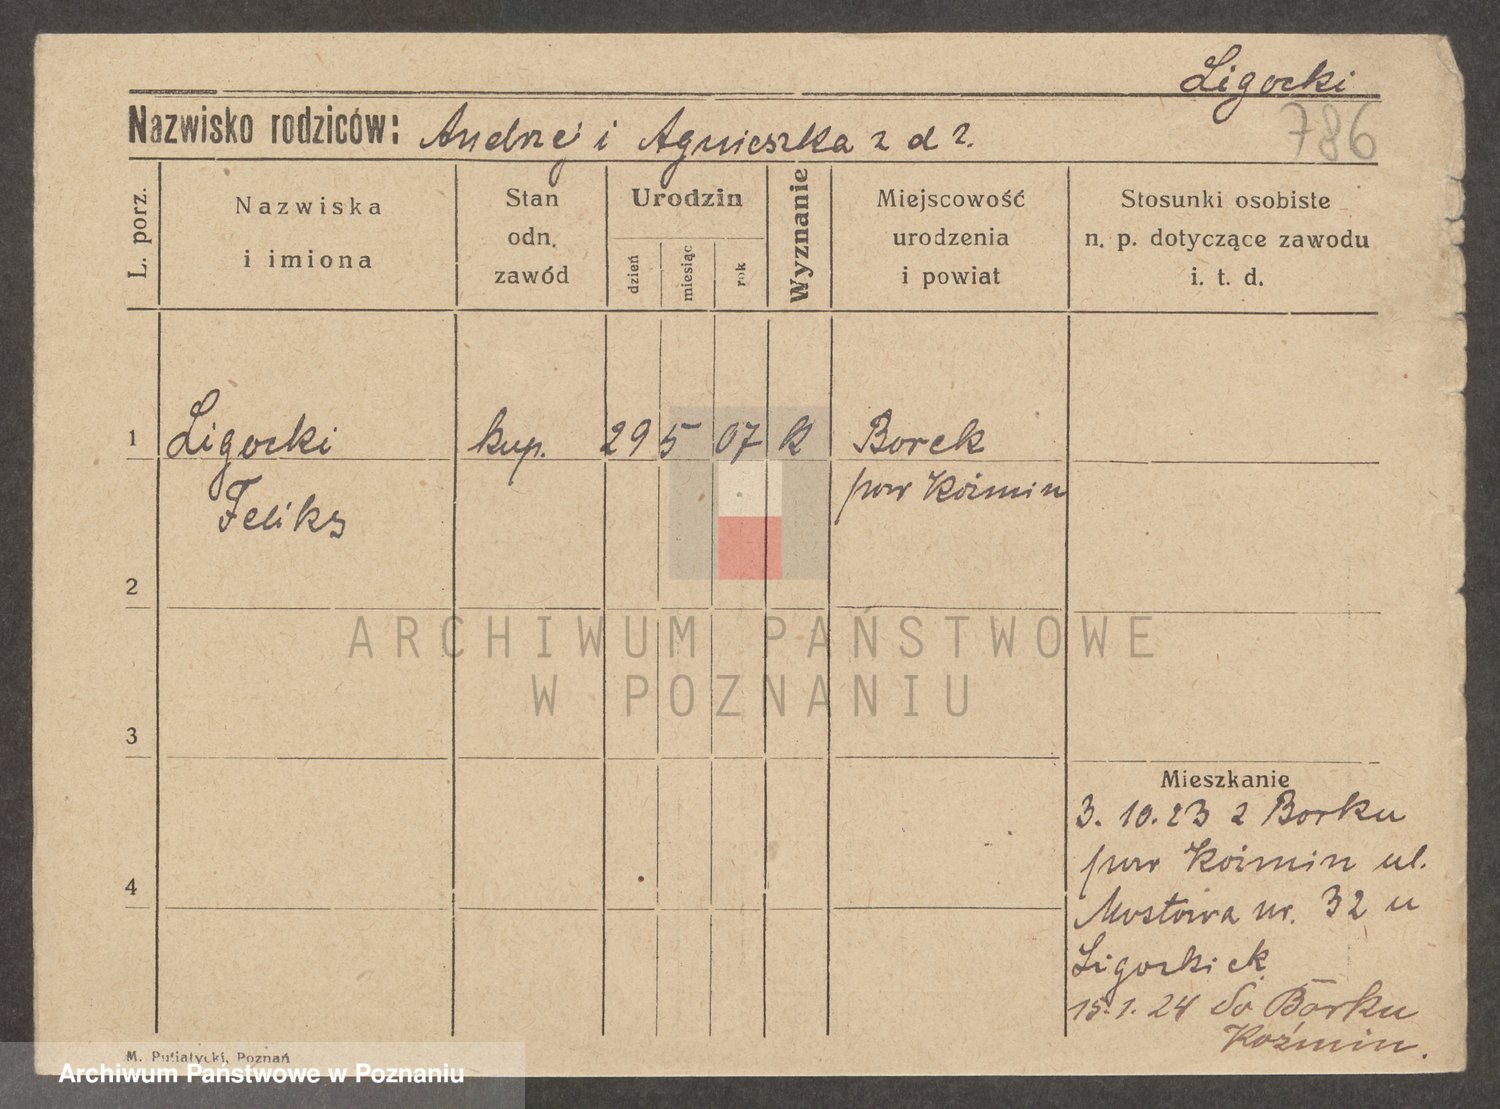 Ligocki
786
Nazwisko rodziców: Andrzej i Agnieszka z d ?.
L. porz.
Nazwiska
i imiona
Stan
odn.
zawód
Urodzin
dzień
miesiąc
rok
Wyznanie
Miejscowość
urodzenia
i powiat
Stosunki osobiste
n. p. dotyczące zawodu
i. t. d.
1 Ligocki kup. 29 5 07 K Borek
Feliks pow Koźmin
2
ARCHIWUM PAŃSTWOWE
W POZNANIU
3
Mieszkanie
3. 10. 23 z Borku
pow Koźmin ul.
4
Mostowa nr. 32 u
Ligocki
15. 1. 24 do Borku
Koźmin.
M. Putiatycki, Poznań
Archiwum Państwowe w Poznaniu